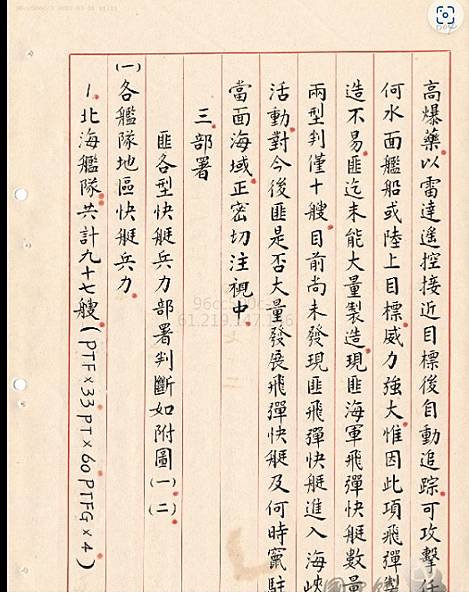 高爆藥以雷達遙控接近目標後自動追踪可攻擊任
何水面艦船或陸上目標威力強大惟因此項飛彈製
造不易匪迄未能大量製造現匪海軍飛彈快艇數量
兩型判僅十艘目前尚未發現匪飛彈快艇進入海峽
活動對今後匪是否大量發展飛彈快艇及何時竄駐
當面海域正密切注視中
三部署
匪各型快艇兵力部署判斷如附圖(一)(二)
(一)各艦隊地區快艇兵力
1.北海艦隊共計九十七艘(PTF×33 PT×60 PTFG×4)